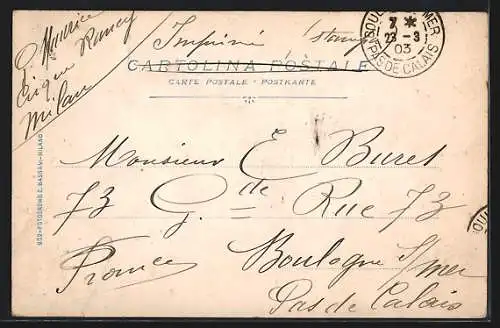 Maurice
Cirque Rancy
Milan
Imprimé
BOULOGNE S MER
7
23 - 3
03
PAS DE CALAIS
CARTOLINA POSTALE
CARTE POSTALE - POSTKARTE
Monsieur E. Buret
73 G.de Rue 73
Boulogne s/mer
France
Pas de Calais
BOUL